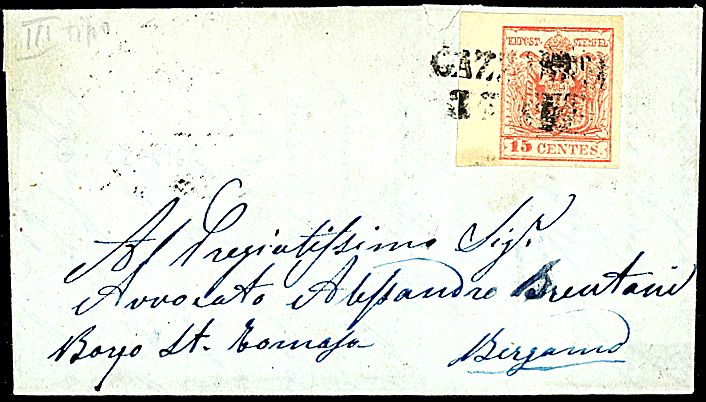 III tipo
KPOST-STEMPEL
CAZZ
15 CENTES.
Al Pregiatissimo Sigr.
Avvocato Alessandro Brentani
Borgo St. Tomaso
Bergamo